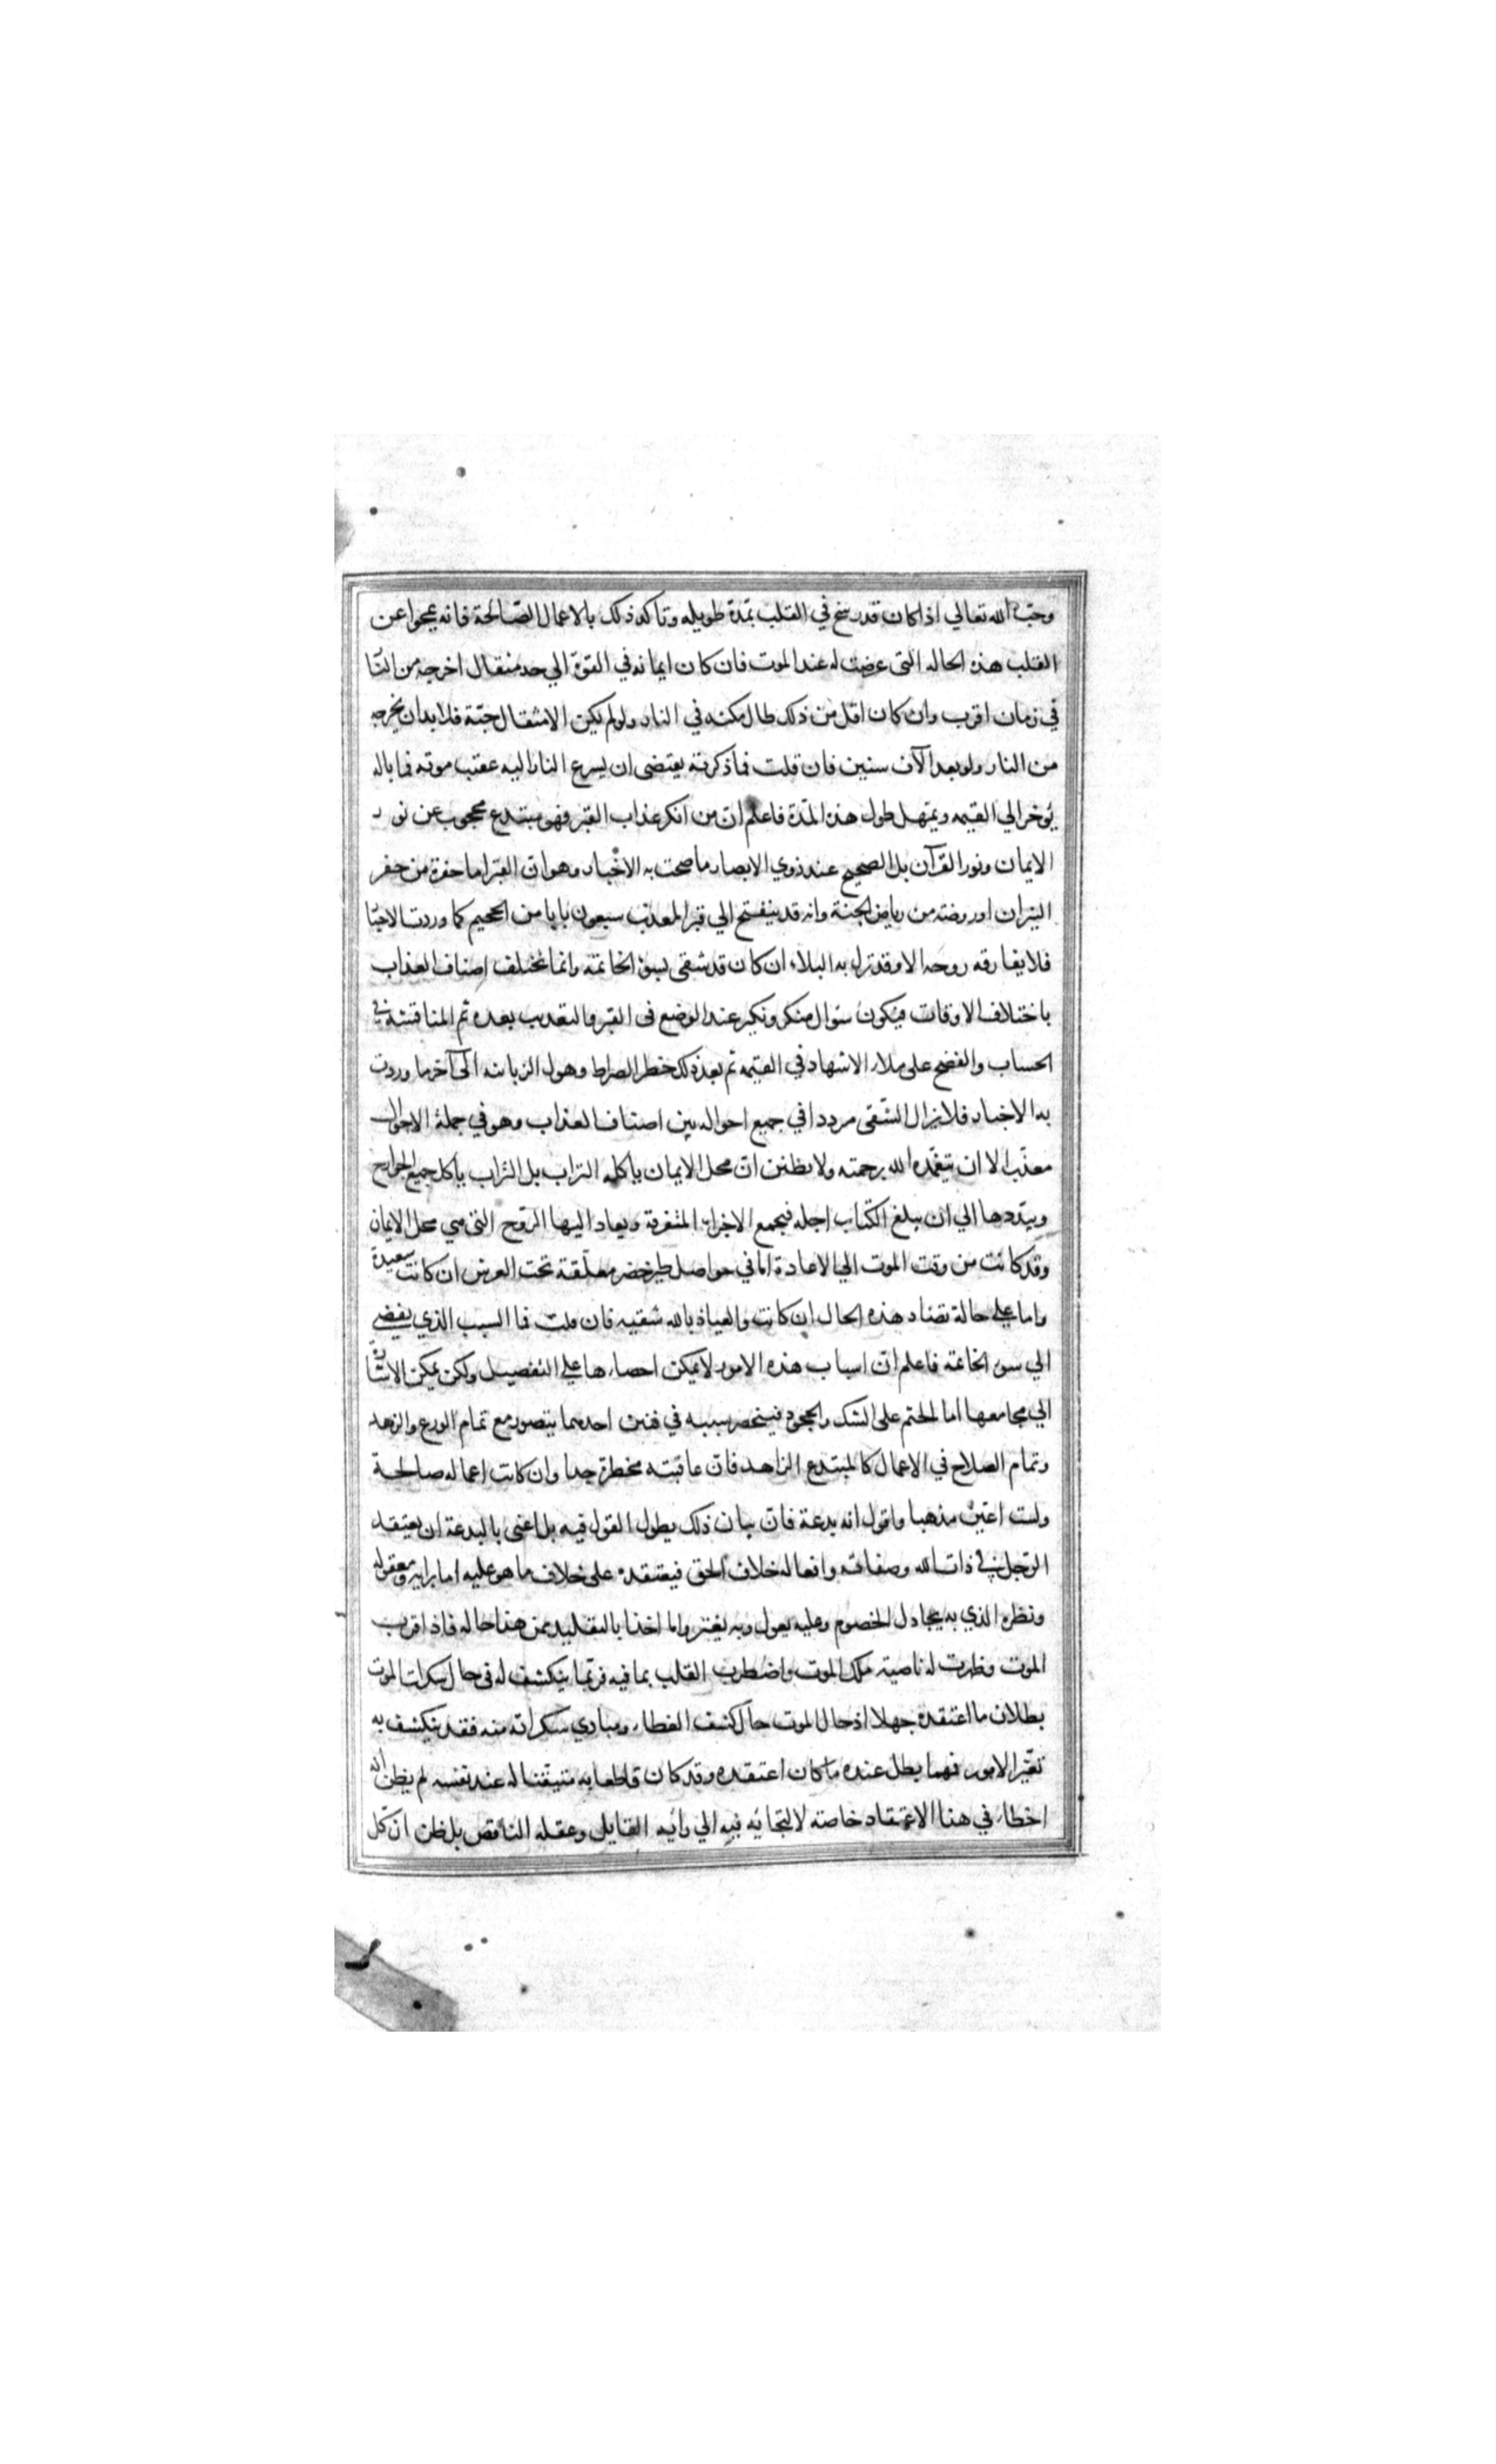 وحبّ الله تعالي اذا كان قد رسخ في القلب بمدة طويله وتاكد ذلك بالاعمال الصّالحة فانه يمحوا عن
القلب هذه الحاله التى عرضت له عند الموت فان كان ايمانه في القوة الي حد مثقال اخرجه من النّا
في زمان اقرب وان كان اقل من ذلك طال مكثه في النار ولو لم يكن الا مثقال حبّة فلا بد ان يخرجه
من النار ولو بعد الآف سنين فان قلت فما ذكرته يقتضى ان يسرع النار اليه عقب موته فما باله
يؤخر الي القيمه ويمهل طول هذه المدّة فاعلم ان من انكر عذاب القبر فهو مبتدع محجوب عن نور
الايمان ونور القرآن بل الصحيح عند ذوي الابصار ما صحت به الاخبار وهو ان القبر اما حفرة من حفر
النيران او روضة من رياض الجنة وانه قد ينفتح الي قبر المعذب سبعون بابا من الجحيم كما وردت الاخبا
فلا يفارقه روحه الا وقد نزل به البلاء ان كان قد شقى بسوء الخاتمة وانما تختلف اصناف العذاب
باختلاف الاوقات فيكون سؤال منكر ونكير عند الوضع فى القبر والتعذيب بعده ثم المناقشة في
الحساب والفضح على ملاء الاشهاد في القيمه ثم بعد ذلك خطر الصراط وهول الزبانيه الى آخر ما وردت
به الاخبار فلا يزال الشّقى مرددا في جميع احواله بين اصناف العذاب وهو في جملة الاحوال
معذّب الا ان يتغمّده الله برحمته ولا يظنن انّ محل الايمان يأكله التراب بل التراب يأكل جميع الجوارح
ويبدّدها الي ان يبلغ الكتاب اجله فيجمع الاجزاء المتفرقة ويعاد اليها الرّوح التى هي محل الايمان
وقد كانت من وقت الموت الي الاعادة اما في حواصل طير خضر معلّقة تحت العرش ان كانت سعيدة
واما على حالة تضاد هذه الحال ان كانت والعياذ بالله شقيه فان قلت فما السبب الذي يفضي
الي سوء الخاتمة فاعلم انّ اسباب هذه الامور لا يمكن احصاءها علي التفصيل ولكن يمكن الاشارة
الي مجامعها اما الختم على الشك والجحود فينحصر سببه في فنين احدهما يتصور مع تمام الورع والزهد
وتمام الصلاح في الاعمال كالمبتدع الزاهد فان عاقبته مخطرة جدا وان كانت اعماله صالحة
ولست اعيّن مذهبا واقول انه بدعة فان بيان ذلك يطول القول فيه بل اعنى بالبدعة ان يعتقد
الرّجل في ذات الله وصفاته وافعاله خلاف الحق فيعتقده على خلاف ما هو عليه اما برايه ومعقوله
ونظره الذي به يجادل الخصوم وعليه يعول وبه يغتر واما اخذا بالتقليد ممن هذا حاله فاذا قرب
الموت وظهرت له ناصية ملك الموت واضطرب القلب بما فيه فربّما ينكشف له فى حال سكرات الموت
بطلان ما اعتقده جهلا اذ حال الموت حال كشف الغطاء ومبادي سكراته منه فقد ينكشف به
تغيّر الامور فهما بطل عنده ما كان اعتقده وقد كان قاطعا به متيقّنا له عند نفسه لم يظن انه
اخطاء في هذا الاعتقاد خاصته لالتجائه فيه الي رأيه القايل وعقله الناقص بل ظن ان كل